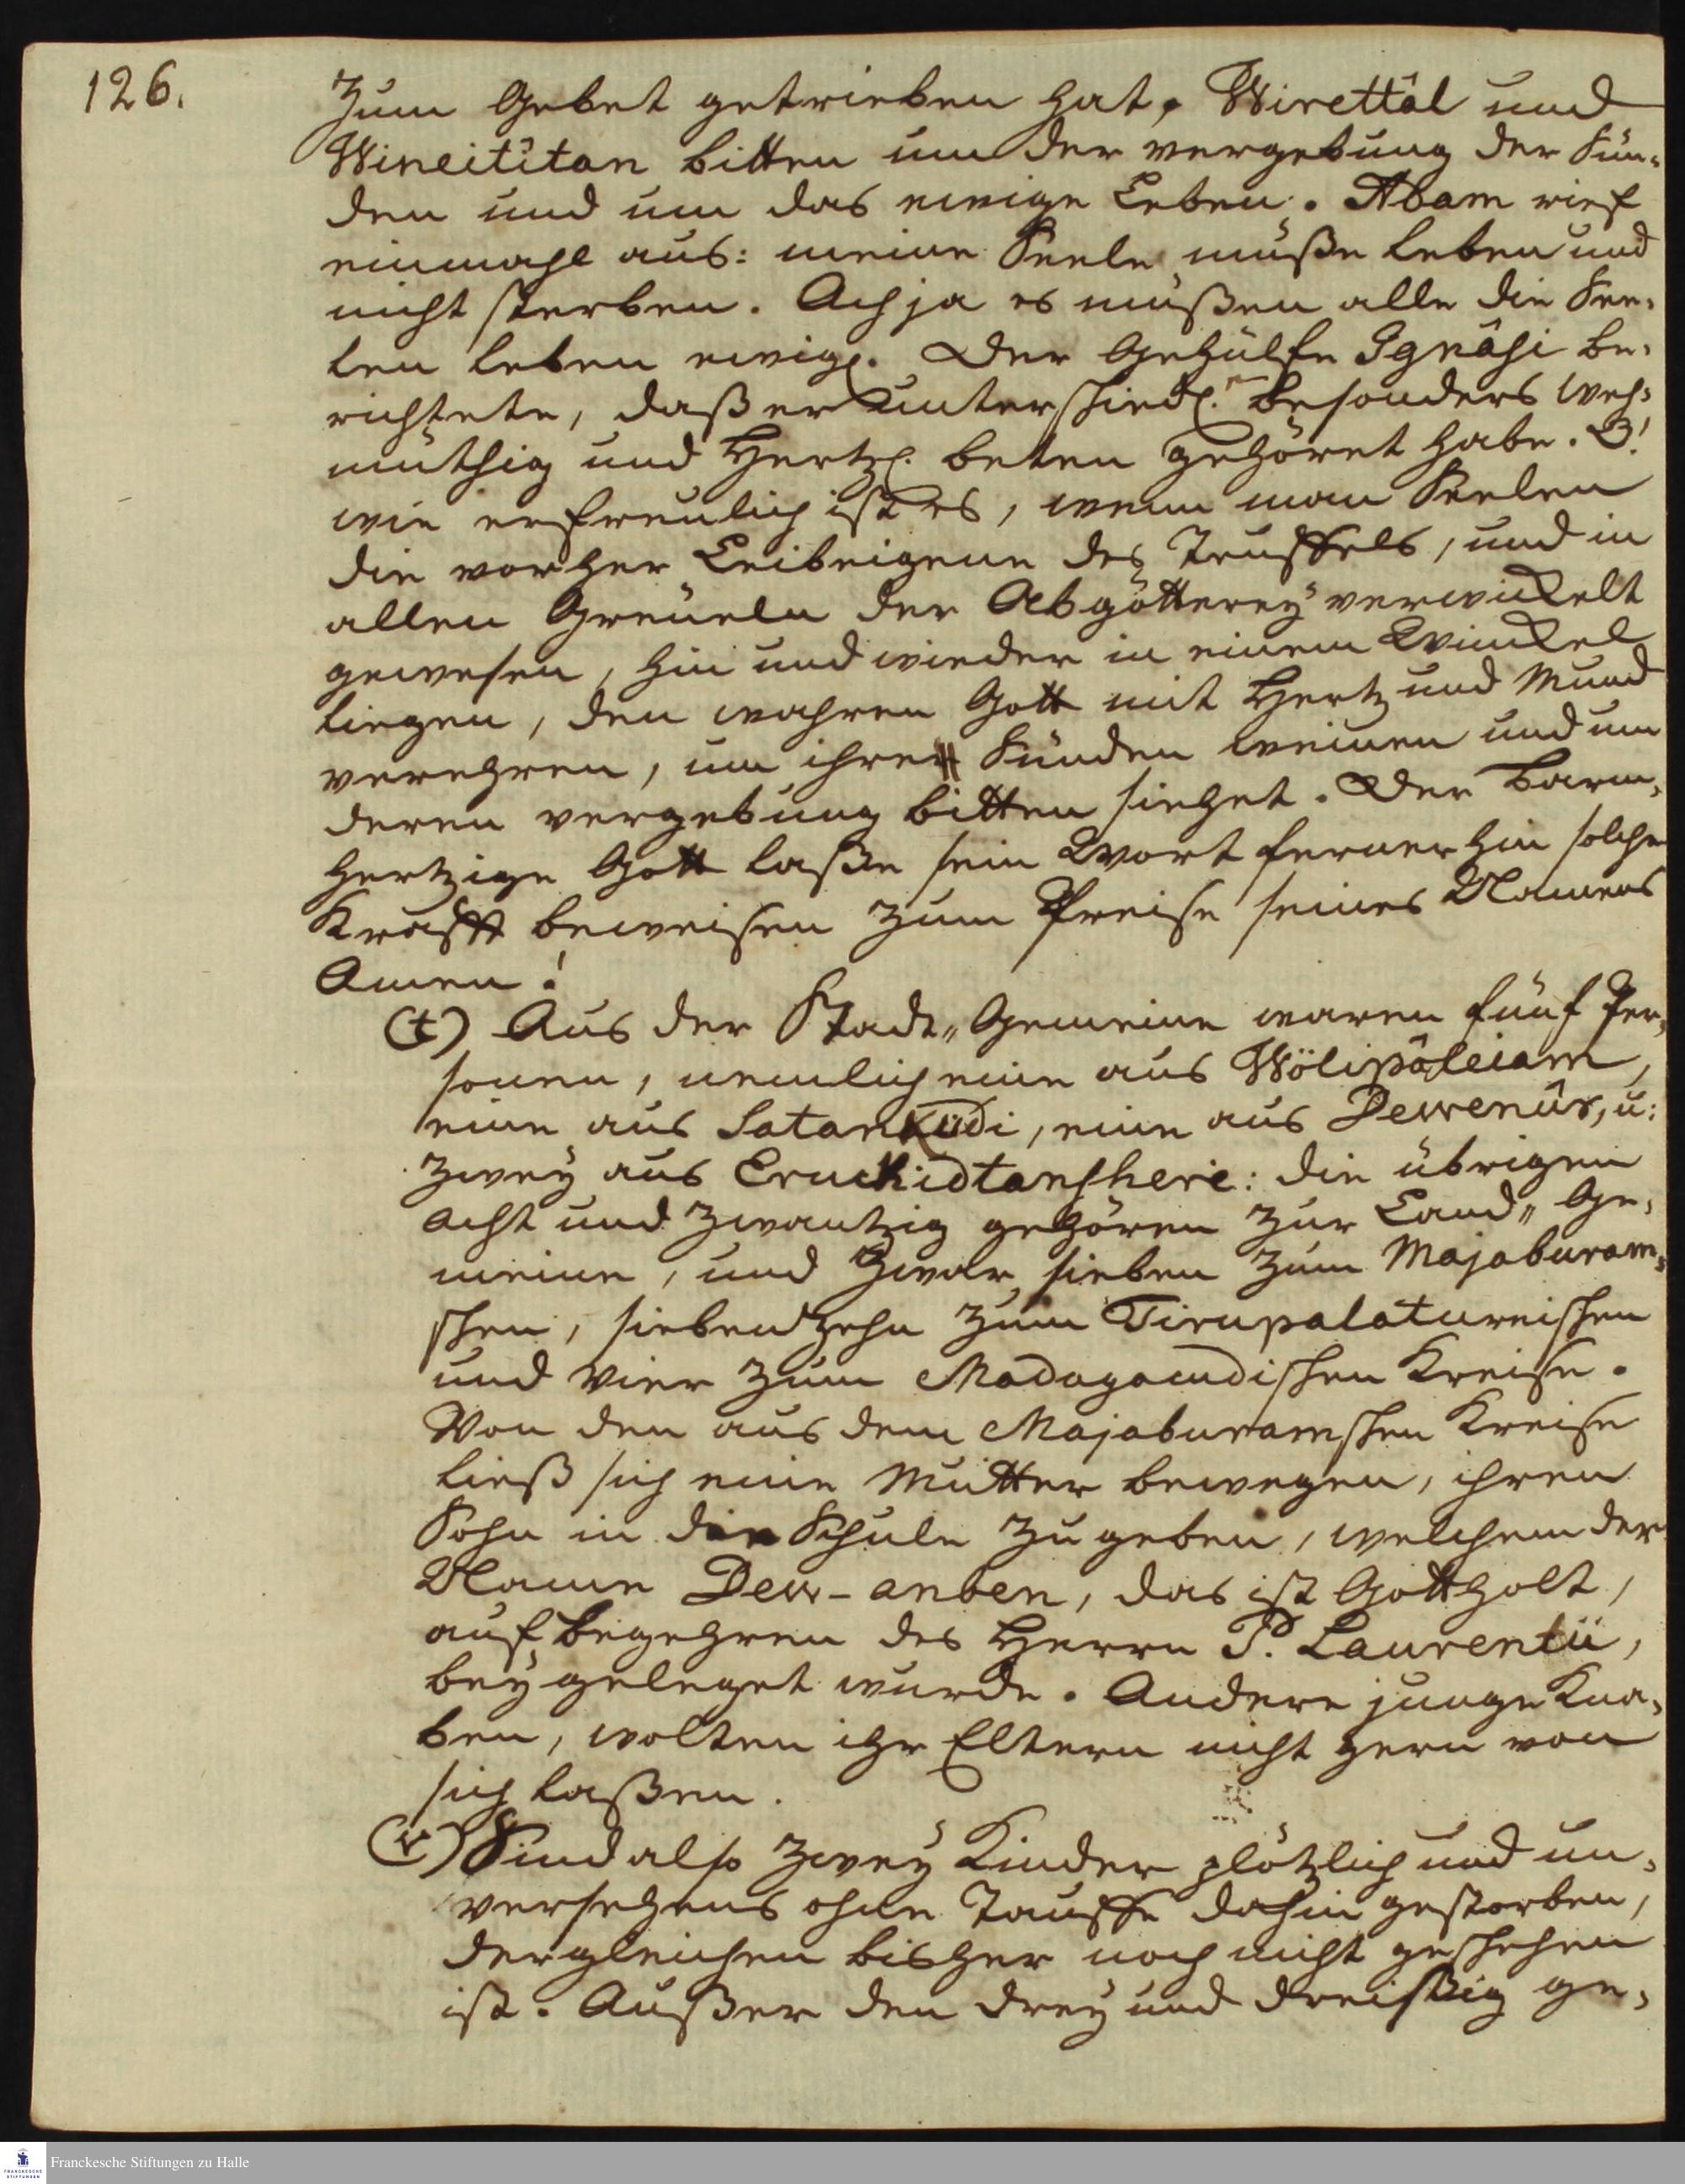 126.
Zum Gebet getrieben hat. Wirettâl und
Wineitîtan bitten um der vergebung der Sün-
den und um das ewige Leben. Abam rief
einmahl aus: meine Seele müße leben und
nicht sterben. Ach ja es müßen alle die See-
len leben ewigl. Der Gehülfe Ignâsi be-
richtete, daß er unterschiedl. besonders weh-
müthig und Hertzl. beten gehöret habe. O!
wie erfreulich ist es, wenn man Seelen
die vorher Leibeigene des Teuffels, und in
allen Greueln der Abgötterey verwickelt
gewesen, hin und wieder in einem Winckel
liegen, den wahren Gott mit Hertz und Mund
verehren, um ihre Sünden weinen und um
deren vergebung bitten siehet. Der Barm-
hertzige Gott laße sein Wort fernerhin solche
Krafft beweisen zum Preise seines Namens
Amen!
(t) Aus der Stadt-Gemeine waren fünf Per-
sonen, nemlich eine aus Wölipâleiam,
eine aus Satankudi, eine aus Dewenûr, u:
zwey aus Eruckidtanscherie: die übrigen
acht und zwantzig gehören zur Land-Ge-
meine, und zwar sieben zum Majaburam-
schen, siebenzehn zum Tirupalatureischen
und vier zum Madagandischen Kreise.
Von den aus dem Majaburamschen Kreise
ließ sich eine Mutter bewegen, ihren
Sohn in die Schule zu geben, welchem der
Name Dew-anben, das ist Gottholt,
auf begehren des Herrn P. Laurentii,
beygeleget wurde. Andere junge Kna-
ben, wolten ihr Eltern nicht gern von
sich laßen.
(v) Sind also zwey Kinder plötzlich und un-
versehens ohne Tauffe dahin gestorben,
dergleichen bisher noch nicht geschehen
ist. Außer den drey und dreißig ge-
FRANCKESCHE STIFTUNGEN
Franckesche Stiftungen zu Halle